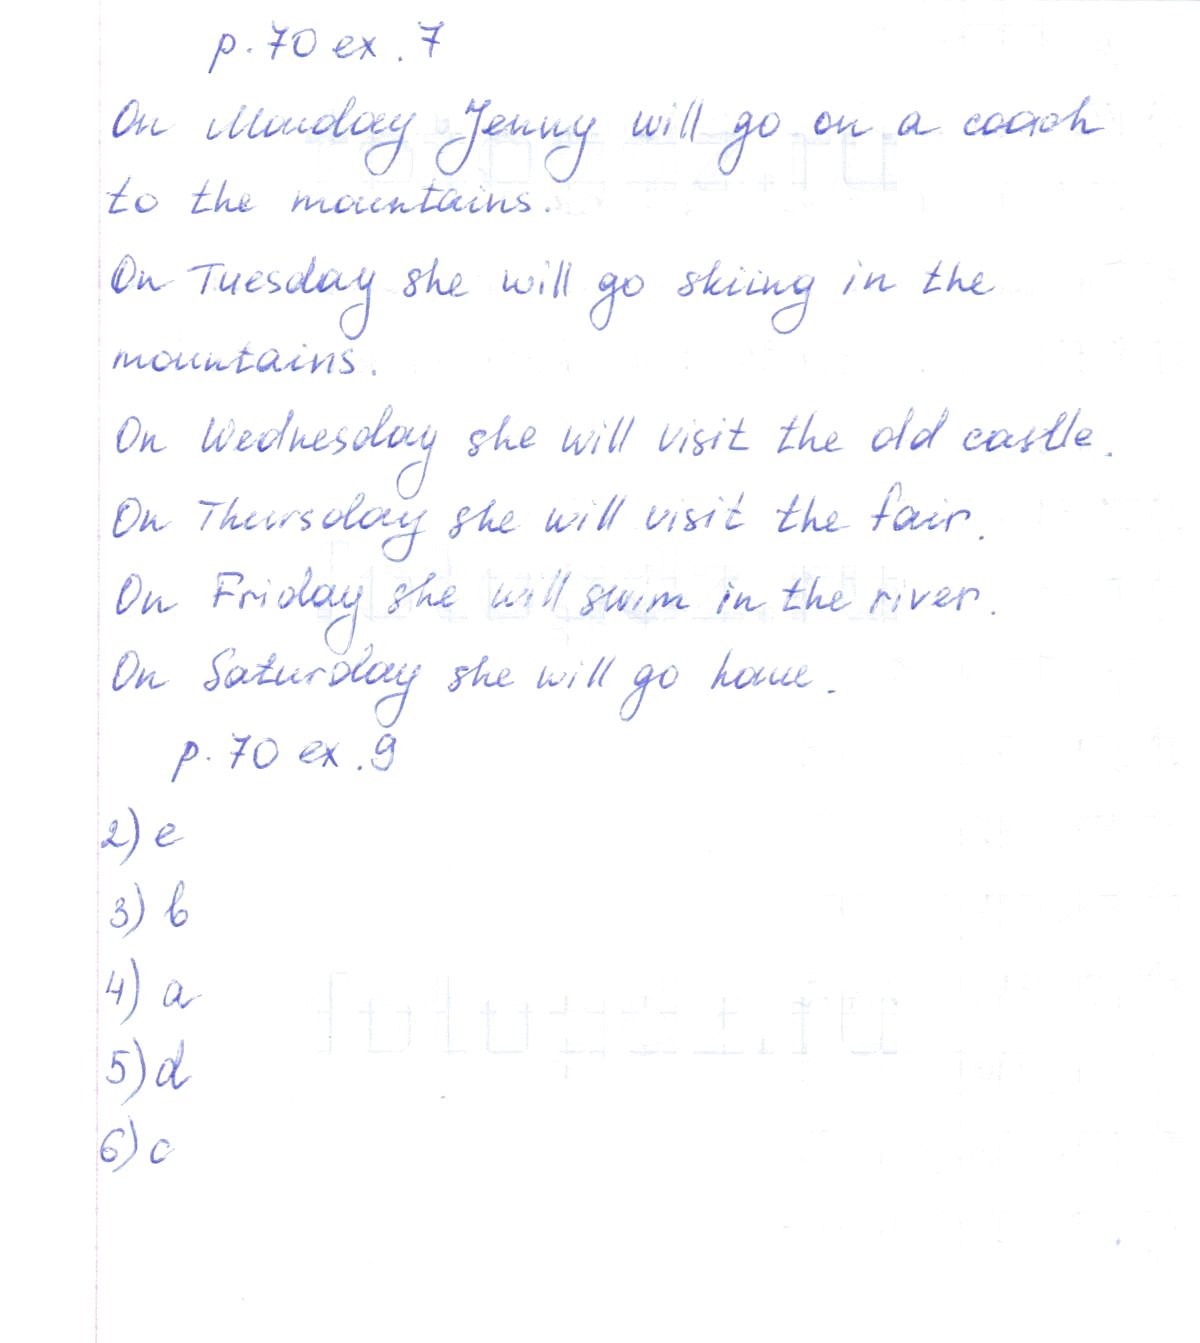 p. 70 ex. 7
On Monday Jenny will go on a coach
to the mountains.
On Tuesday she will go skiing in the
mountains.
On Wednesday she will visit the old castle.
On Thursday she will visit the fair.
On Friday she will swim in the river.
On Saturday she will go home.
p. 70 ex. 9
2) e
3) b
4) a
5) d
6) c